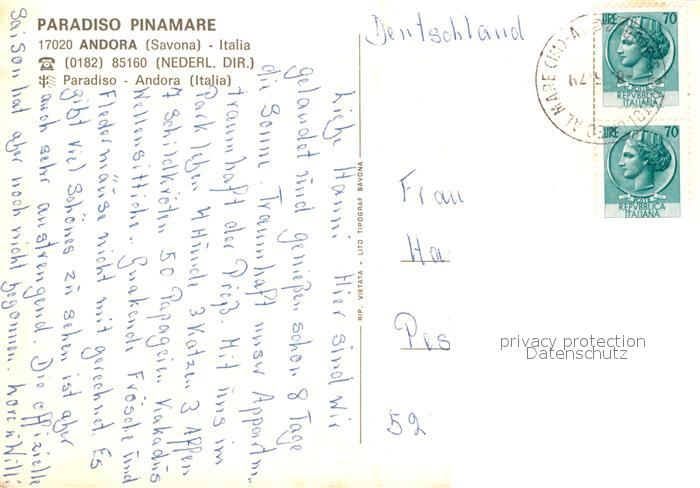 PARADISO PINAMARE
17020 ANDORA (Savona) - Italia
☎ (0182) 85160 (NEDERL. DIR.)
Paradiso - Andora (Italia)
Liebe Hanni! Hier sind wir
gelandet und genießen schon 8 Tage
die Sonne. Traumhaft unser Appartm.
traumhaft der Preiß. Mit uns im
Park leben 4 Hunde 3 Katzen 3 Affen
7 Schildkröten 50 Papageien Kakadus
Wellensittiche. Quakende Frösche und
Fledermäuse nicht mit gerechnet. Es
gibt viel Schönes zu sehen ist aber
auch sehr anstrengend. Die offizielle
Saison hat aber noch nicht begonnen. Lore u Willi
RIP. VIETATA - LITO TIPOGRAF SAVONA
Deutschland
LIRE 70
POSTE
REPVBBLICA
ITALIANA
LIRE 70
POSTE
REPVBBLICA
ITALIANA
AL MARE (IM)
Frau
Ha
Pes
52
privacy protection
Datenschutz